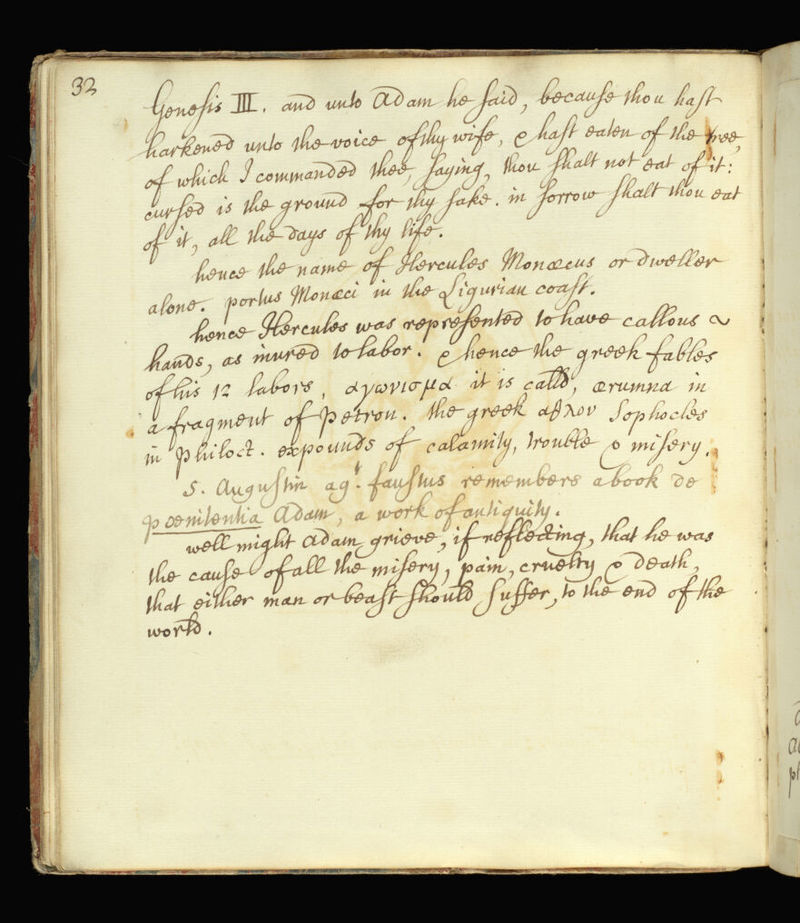 32
Genesis III. and unto Adam he said, because thou hast
harkened unto the voice of thy wife, & hast eaten of the tree,
of which I commanded thee, saying, thou shalt not eat of it:
cursed is the ground for thy sake. in sorrow shalt thou eat
of it, all the days of thy life.
hence the name of Hercules Monæcus or dweller
alone. portus Monæci in the Ligurian coast.
hence Hercules was represented to have callous
hands, as inured to labor. & hence the greek fables
of his 12 labors, αγωνισμα it is calld, ærumna in
a fragment of Petron. the greek αθλον Sophocles
in Philoct. expounds of calamity, trouble & misery.
S. Augustin agt. faustus remembers a book de
pœnitentia Adam, a work of antiquity.
well might Adam grieve, if reflecting, that he was
the cause of all the misery, pain, cruelty & death,
that either man or beast should suffer, to the end of the
world.